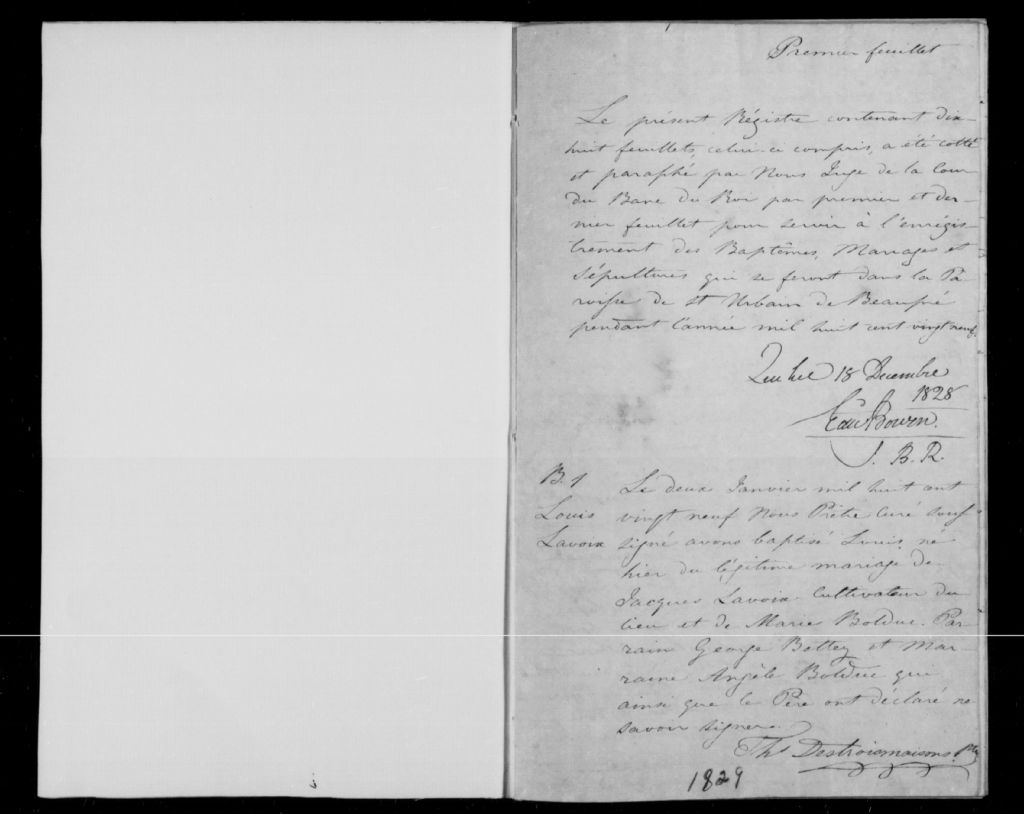 Premier feuillet
Le présent Régistre contenant dix-
huit feuillets, celui-ci compris, a été cotté
et paraphé par Nous Juge de la Cour
du Banc du Roi par premier et der-
nier feuillet pour servir à l'enrégis-
trement des Baptêmes, Mariages et
Sépultures qui se feront dans la Pa-
roisse de St Urbain de Beaupré
pendant l'année mil huit cent vingt neuf.
Quebec 18 Decembre
1828
Edwd Bowen.
J. B. R.
B. 1
Louis
Lavoix
Le deux Janvier mil huit cent
vingt neuf Nous Prêtre Curé sous-
signé avons baptisé Louis, né
hier du légitime mariage de
Jacques Lavoix Cultivateur du
lieu et de Marie Bolduc. Par-
rain George Bottey et Mar-
raine Angèle Bolduc qui
ainsi que le Père ont déclaré ne
savoir signer.
Ths Destroismaisons Ptre
1829